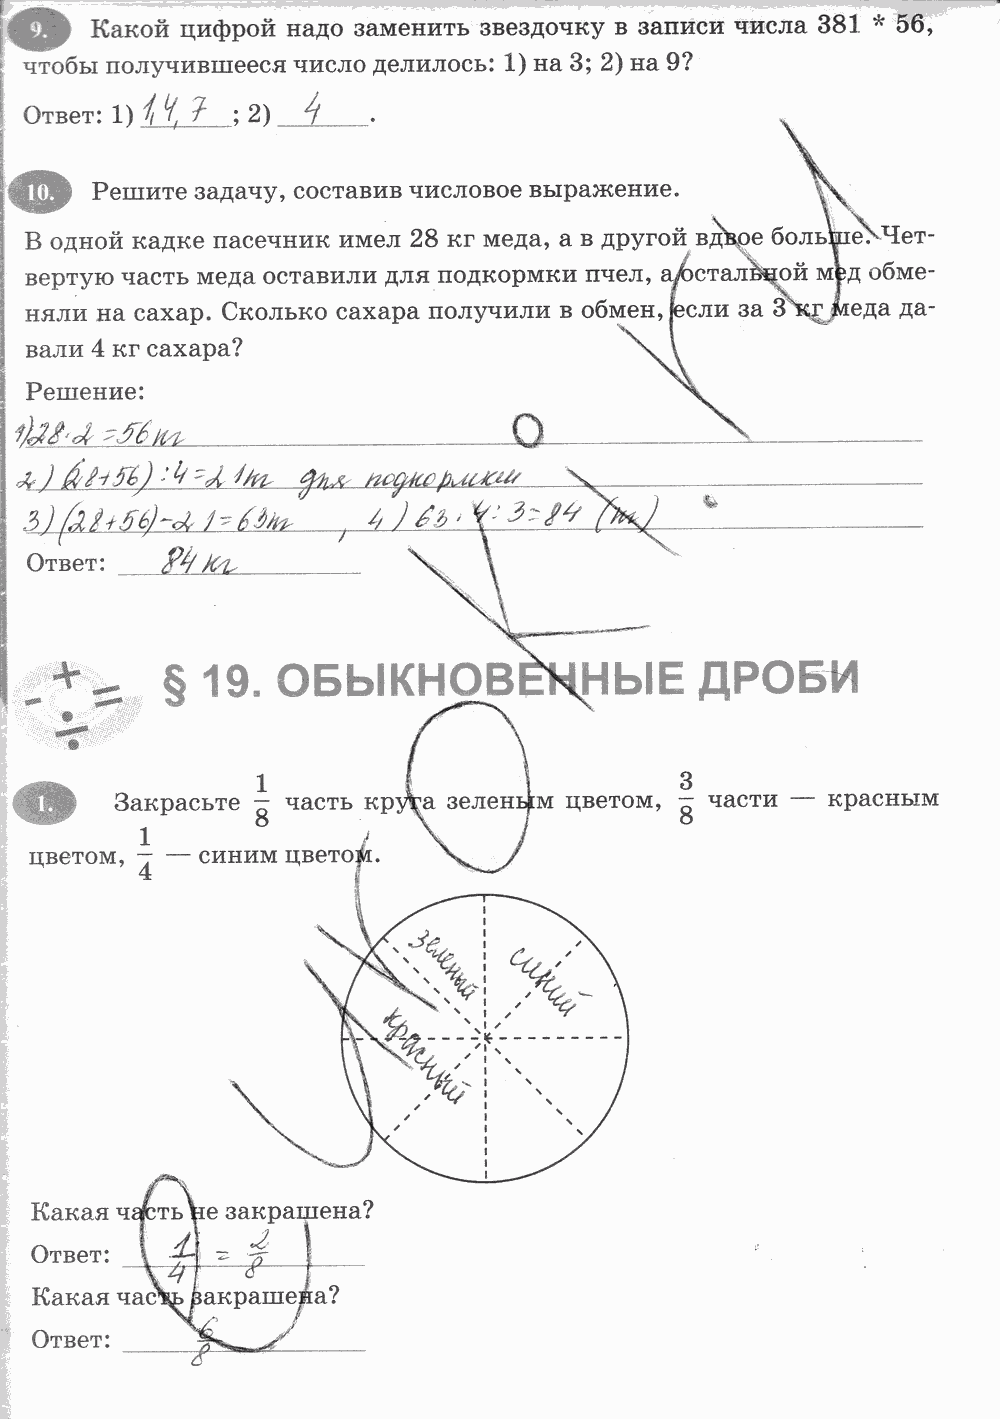 9. Какой цифрой надо заменить звездочку в записи числа 381 * 56,
чтобы получившееся число делилось: 1) на 3; 2) на 9?
Ответ: 1) 1,4,7 ; 2) 4 .
10. Решите задачу, составив числовое выражение.
В одной кадке пасечник имел 28 кг меда, а в другой вдвое больше. Чет-
вертую часть меда оставили для подкормки пчел, а остальной мед обме-
няли на сахар. Сколько сахара получили в обмен, если за 3 кг меда да-
вали 4 кг сахара?
Решение:
1) 28·2=56 кг
2) (28+56):4=21 кг для подкормки
3) (28+56)-21=63 кг , 4) 63·4:3=84 (кг)
Ответ: 84 кг
§ 19. ОБЫКНОВЕННЫЕ ДРОБИ
1. Закрасьте 1/8 часть круга зеленым цветом, 3/8 части — красным
цветом, 1/4 — синим цветом.
зеленый
синий
красный
Какая часть не закрашена?
Ответ: 1/4 = 2/8
Какая часть закрашена?
Ответ: 6/8